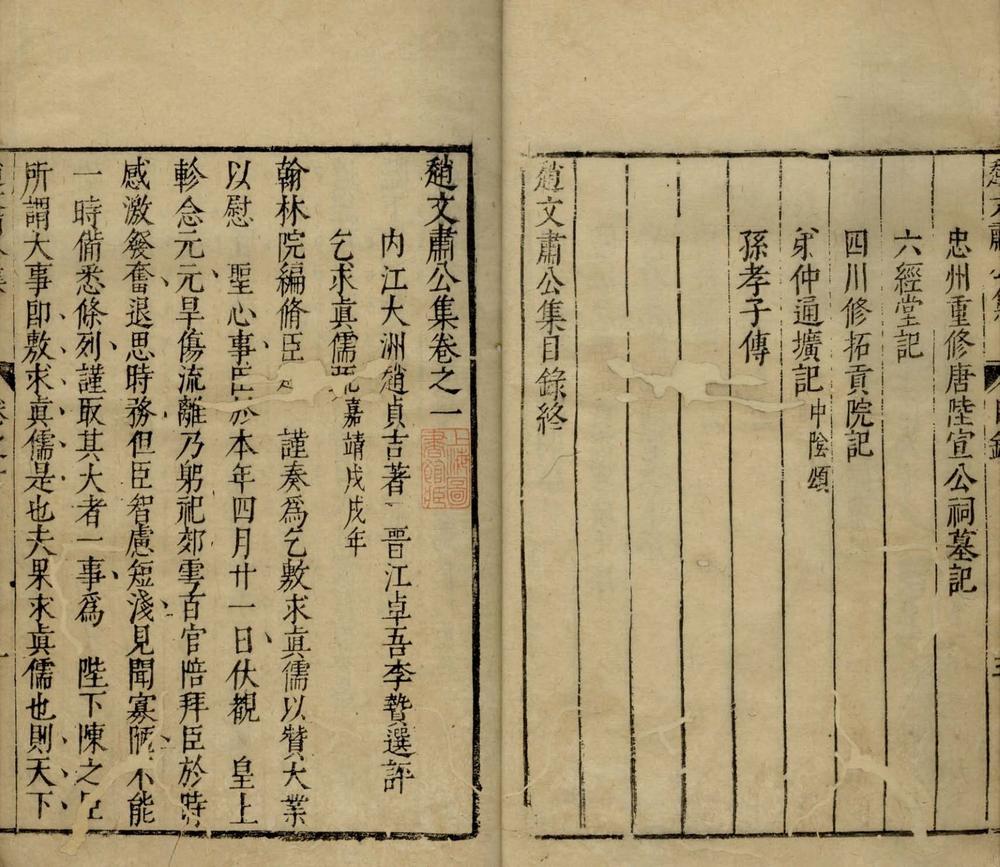 忠州重修唐陸宣公祠墓記
六經堂記
四川修拓貢院記
弟仲通壙記中陰頌
孫孝子傳
趙文肅公集目錄終
趙文肅公集卷之一
內江大洲趙貞吉著 晉江卓吾李贄選評
乞求眞儒疏嘉靖戊戌年
翰林院編脩臣 謹奏爲乞敷求眞儒以贊大業
以慰 聖心事臣於本年四月廿一日伏覩 皇上
軫念元元旱傷流離乃躬祀郊雩百官陪拜臣於時
感激發奮退思時務但臣智慮短淺見聞寡陋不能
一時備悉條列謹取其大者一事爲 陛下陳之臣
所謂大事卽敷求眞儒是也夫果求眞儒也則天下
上海圖書館藏